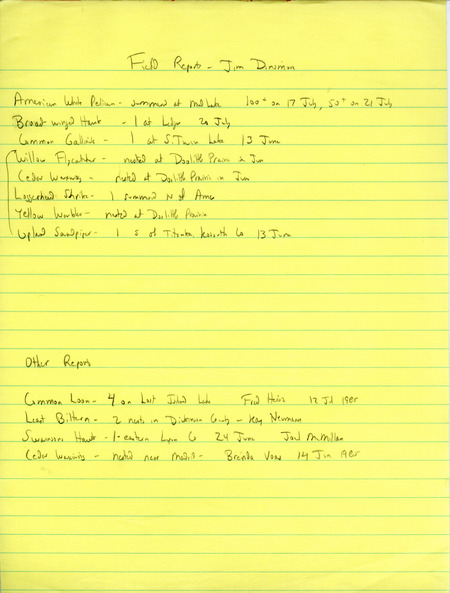 Field Reports - Jim Dinsmore
American White Pelican - summered at mud Lake 100+ on 17 July, 50+ on 21 July
Broad-winged Hawk - 1 at Ledges 20 July
Common Gallinule - 1 at S. Twin Lake 13 June
Willow Flycatcher - nested at Doolittle Prairie in Jun
Cedar Waxwing - nested at Doolittle Prairie in Jun
Loggerhead Shrike - 1 summered N of Ames
Yellow Warbler - nested at Doolittle Prairie
Upland Sandpiper - 1 S of Titonka, Kossuth Co 13 June
Other Reports
Common Loon - 4 on Lost Island Lake Fred Heinz 12 Jul 1985
Least Bittern - 2 nests in Dickinson County - Kay Neumann
Swainsons Hawk - 1 - eastern Lyon Co 24 June Joel McMillan
Cedar Waxwings - nested near - Brenda 14 Jun 1985